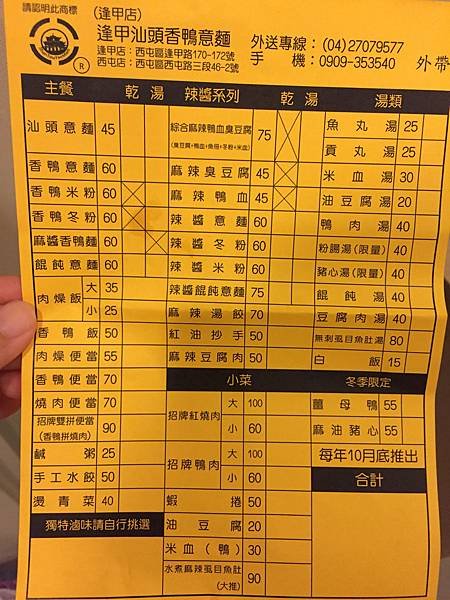 請認明此商標
R
(逢甲店)
逢甲汕頭香鴨意麵
逢甲店：西屯區逢甲路170-172號
西屯店：西屯區西屯路三段46-2號
外送專線：(04)27079577
手機：0909-353540
外帶
主餐 乾 湯
汕頭意麵 45
香鴨意麵 60
香鴨米粉 60
香鴨冬粉 60
麻醬香鴨麵 60
餛飩意麵 60
肉燥飯 大 35
小 25
香鴨飯 50
肉燥便當 55
香鴨便當 70
燒肉便當 70
招牌雙拼便當 90
(香鴨拼燒肉)
鹹粥 25
手工水餃 50
燙青菜 40
獨特滷味請自行挑選
辣醬系列 乾 湯
綜合麻辣鴨血臭豆腐 75
(臭豆腐+鴨血+魚冊+冬粉+米血)
麻辣臭豆腐 45
麻辣鴨血 45
辣醬意麵 60
辣醬冬粉 60
辣醬米粉 60
辣醬餛飩意麵 75
麻辣湯餃 70
紅油抄手 50
麻辣豆腐肉 50
小菜
招牌紅燒肉 大 100
小 60
招牌鴨肉 大 100
小 60
蝦捲 50
油豆腐 20
米血(鴨) 30
水煮麻辣虱目魚肚 90
(大推)
湯類
魚丸湯 25
貢丸湯 25
米血湯 30
油豆腐湯 20
鴨肉湯 40
粉腸湯(限量) 40
豬心湯(限量) 40
餛飩湯 40
豆腐肉湯 40
無刺虱目魚肚湯 80
白飯 15
冬季限定
薑母鴨 55
麻油豬心 55
每年10月底推出
合計